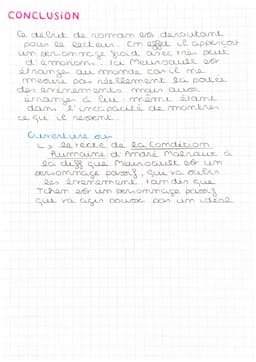 CONCLUSION
Ce début de roman est déroutant
pour le lecteur. En effet il apperçoit
un personnage froid avec très peut
d'émotions. Ici Meursault est
étranger au monde car il ne
mesure pas réellement la portée
des évènements mais aussi
étranger à lui-même étant
dans l'incapacité de montrer
ce qu'il ressent.
Ouverture sur
↳ le texte de la Condition
Humaine d'André Malraux à
la diff que Meursault est un
personnage passif, qui va subir
les évenement tandis que
Tchen est un personnage passif
qui va agir poussé par un idéal